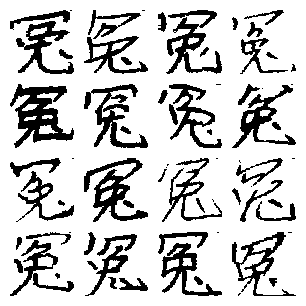 冤冤冤冤
冤冤冤冤
冤冤冤冤
冤冤冤冤